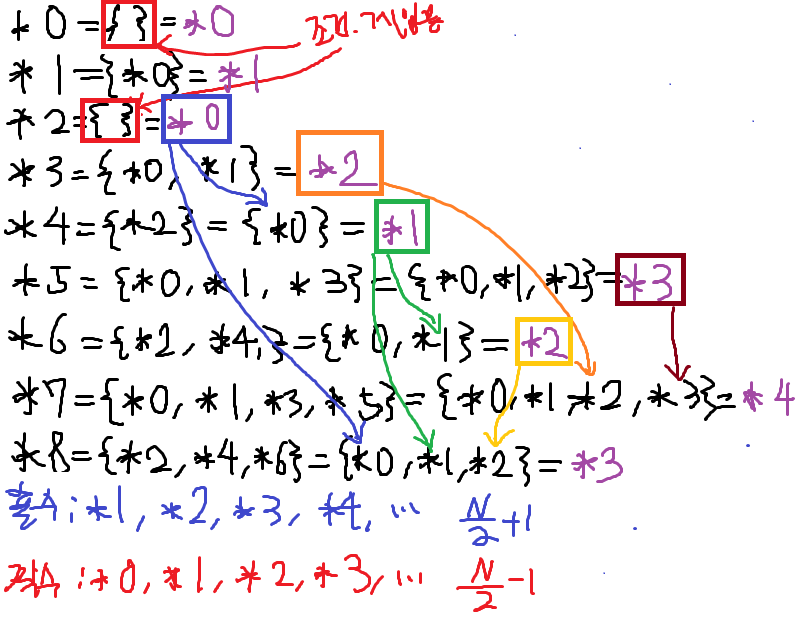 *0={ }=*0 조건.기님않음
*1={*0}=*1
*2={ }=*0
*3={*0, *1}=*2
*4={*2}={*0}=*1
*5={*0, *1, *3}={*0,*1,*2}=*3
*6={*2, *4,}={*0, *1}=*2
*7={*0, *1, *3, *5}={*0,*1,*2,*3}=*4
*8={*2, *4, *6}={*0,*1,*2}=*3
홀수:*1, *2, *3, *4, ... N/2+1
짝수:*0, *1, *2, *3, ... N/2-1